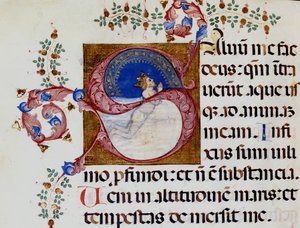 Saluum me fac
deus: qm̄ intra
uerūt aque us
qꝫ ad animaꝫ
meam. Infi
xus sum in li
mo ꝓfundi: et nō ē substancia.
Ueni in altitudinē maris: et
tempestas demersit me.